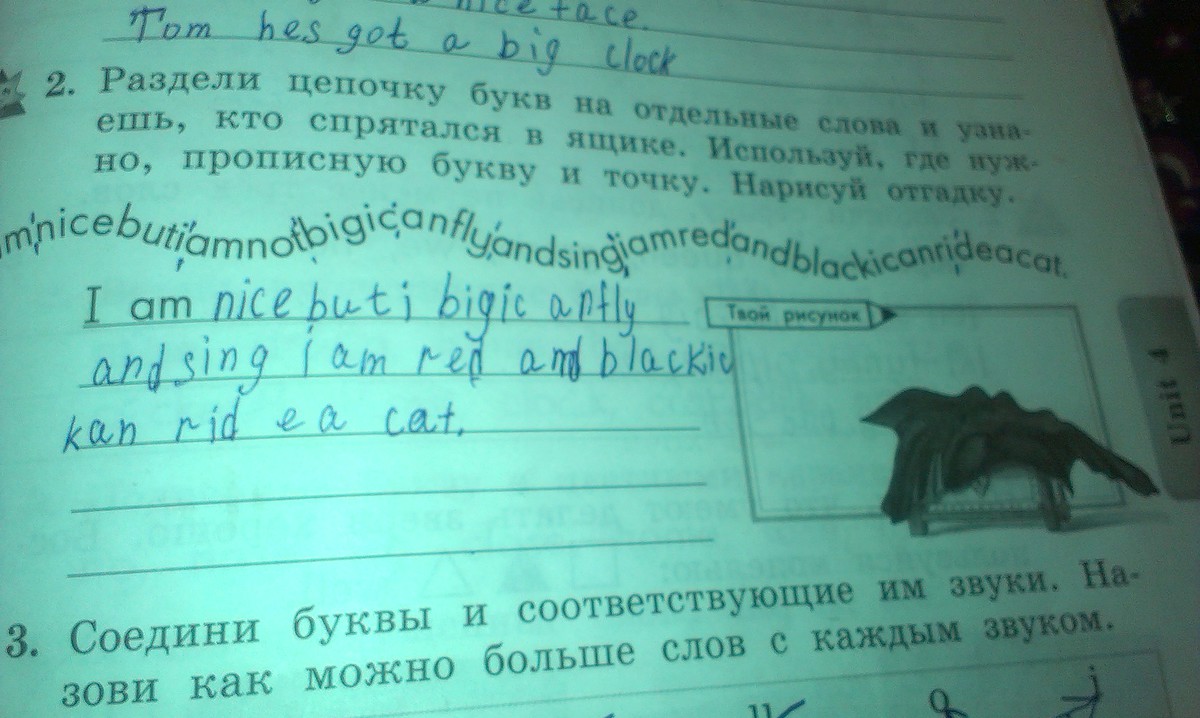 nice face.
Tom hes got a big clock
2. Раздели цепочку букв на отдельные слова и узна-
ешь, кто спрятался в ящике. Используй, где нуж-
но, прописную букву и точку. Нарисуй отгадку.
mnicebutiamnotbigicanflyandsingiamredandblackicanrideacat.
I am nice but i bigic anfly
Твой рисунок
andsing i am red and blackic
kan rid e a cat.
Unit 4
3. Соедини буквы и соответствующие им звуки. На-
зови как можно больше слов с каждым звуком.